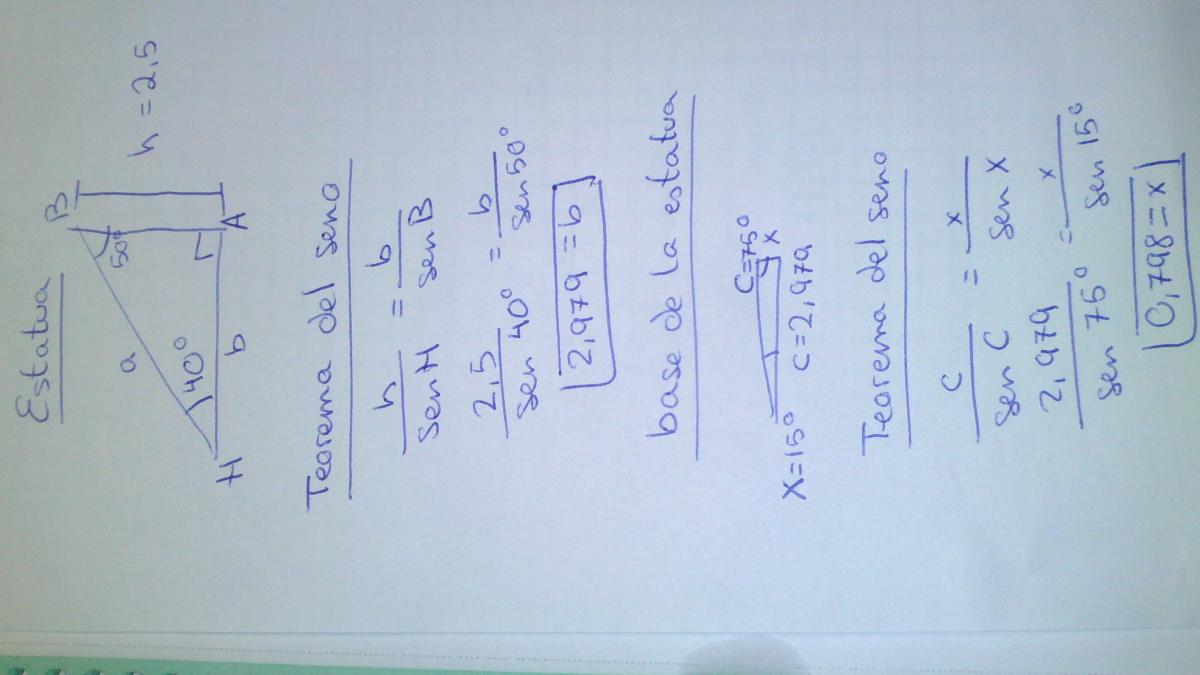 Estatua
B
50°
h = 2,5
a
40°
H
b
A
Teorema del seno
h/sen H = b/sen B
2,5/sen 40° = b/sen 50°
2,979 = b
base de la estatua
C=75°
x
X=15° c=2,979
Teorema del seno
c/sen C = x/sen X
2,979/sen 75° = x/sen 15°
0,798 = x